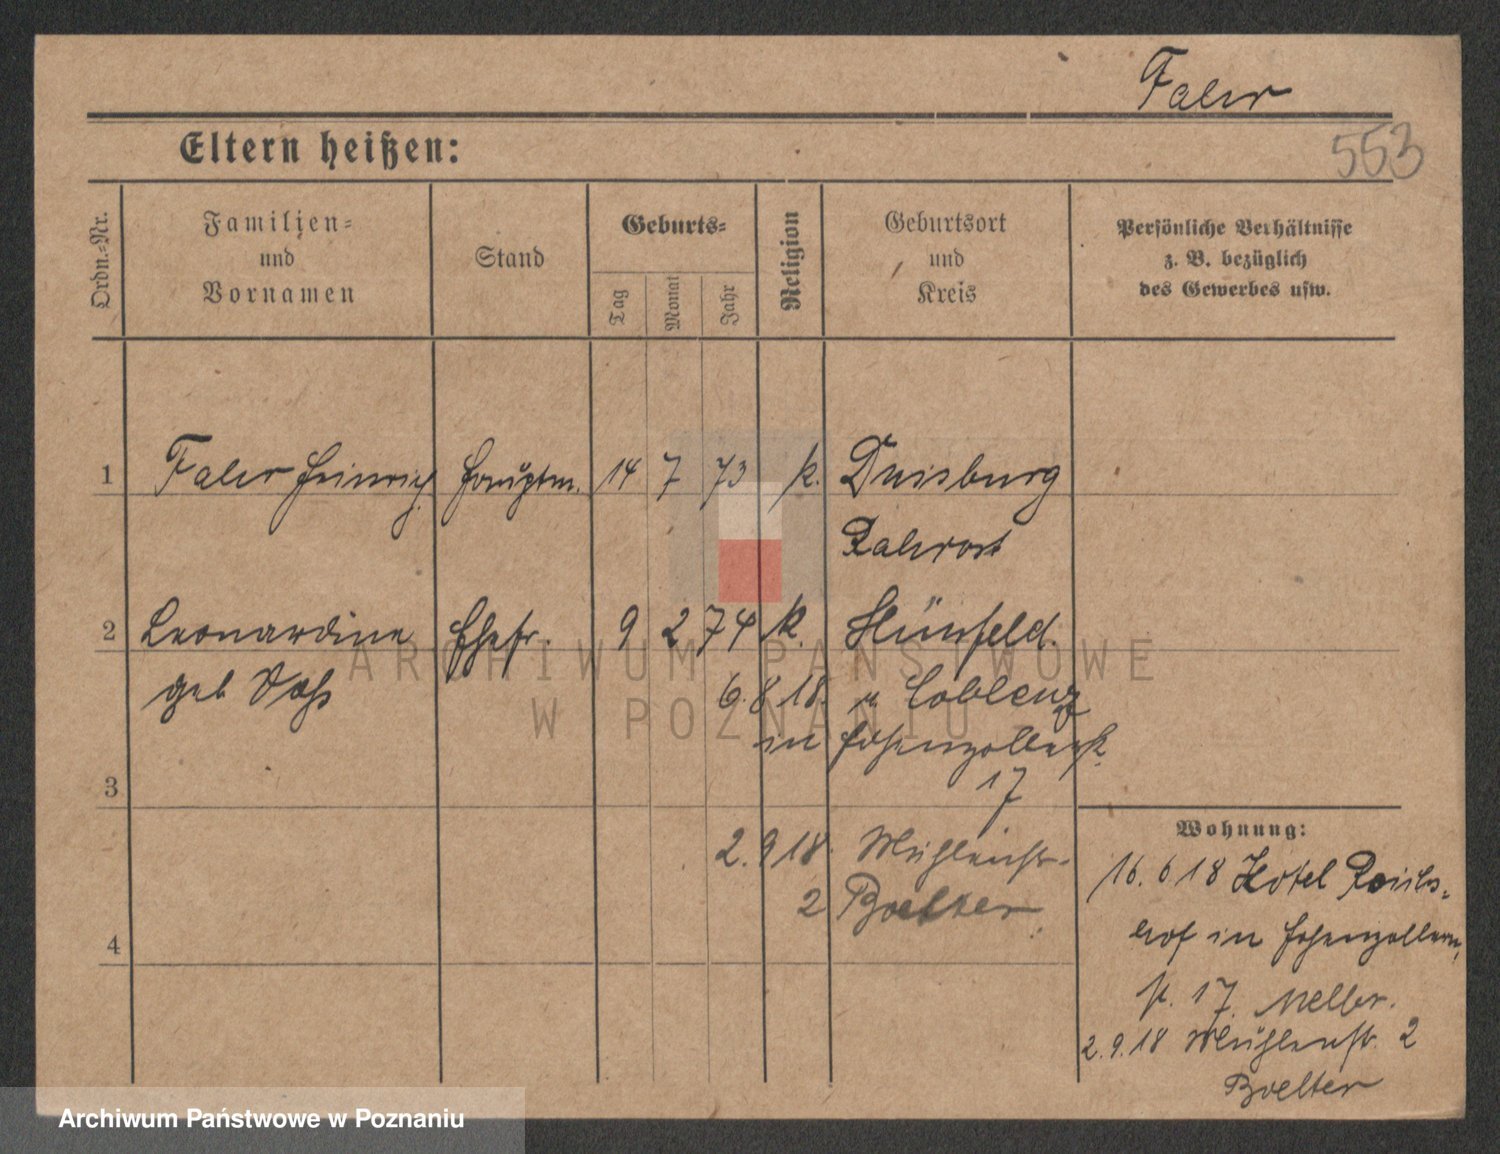 Faler
553
Eltern heißen:
Ordn.=Nr.
Familien=
und
Vornamen
Stand
Geburts=
Tag
Monat
Jahr
Religion
Geburtsort
und
Kreis
Persönliche Verhältnisse
z. B. bezüglich
des Gewerbes usw.
1 Faler Heinrich Hauptm. 14 7 73 k. Duisburg
Ruhrort
2 Leonardine Ehefr. 9 2 74 k. Hünfeld.
geb 6.8 18. Coblenz
in Hohenzollernstr.
17
3
2.9 18 Mühlenstr.
2 Boelter
4
Wohnung:
16.6 18 Hotel Reichs=
hof in Hohenzollern
str. 17.
2.9.18 Mühlenstr. 2
Boelter
ARCHIWUM PAŃSTWOWE
W POZNANIU
Archiwum Państwowe w Poznaniu